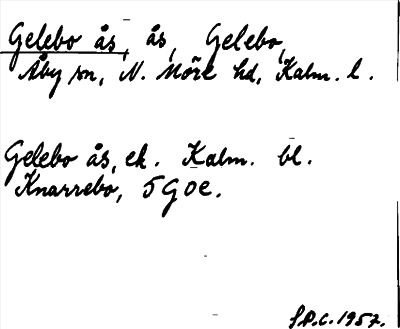 Gelebo ås, ås, Gelebo,
Åby sn, N. Möre hd, Kalm. l.
Gelebo ås, ek. Kalm. bl.
Knarrebo, 5G0e.
S.P.C. 1957.